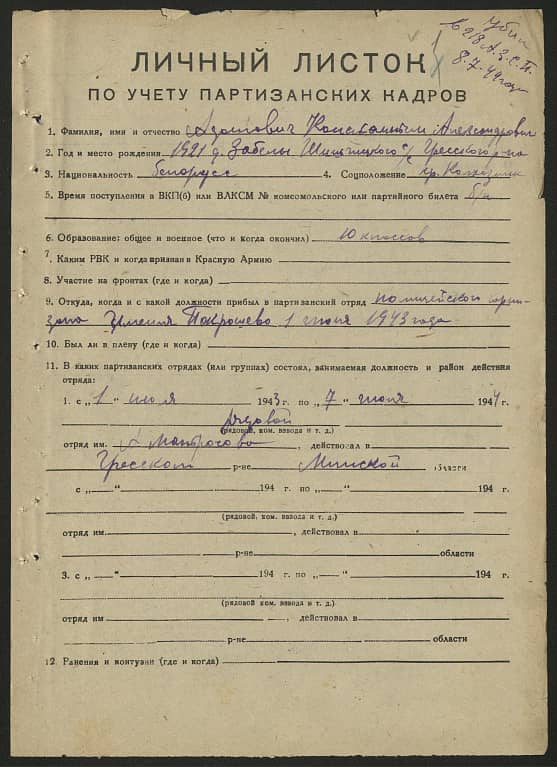 Убит
в 218 А.З.С.П.
8.7.44 года
ЛИЧНЫЙ ЛИСТОК
ПО УЧЕТУ ПАРТИЗАНСКИХ КАДРОВ
1. Фамилия, имя и отчество Константин Александрович
2. Год и место рождения 1921 д. Забелы с/с Гресского р-на
3. Национальность белорусс 4. Соцположение кр. Колхозник
5. Время поступления в ВКП(б) или ВЛКСМ № комсомольского или партийного билета б/п
6. Образование: общее и военное (что и когда окончил) 10 классов
7. Каким РВК и когда призван в Красную Армию
8. Участие на фронтах (где и когда)
9. Откуда, когда и с какой должности прибыл в партизанский отряд полицейского гарни-
зона 1943 года
10. Был ли в плену (где и когда)
11. В каких партизанских отрядах (или группах) состоял, занимаемая должность и район действия
отряда:
1. с „1“ июля 1943 г. по „7“ 1944 г.
рядовой
(рядовой, ком. взвода и т. д.)
отряд им. А Матросова, действовал в
Гресском р-не Минской области
с „ “ 194 г. по „ “ 194 г.
(рядовой, ком. взвода и т. д.)
отряд им. , действовал в
р-не области
3. с „ “ 194 г. по „ “ 194 г.
(рядовой, ком. взвода и т. д.)
отряд им , действовал в
р-не области
12. Ранения и контузии (где и когда)